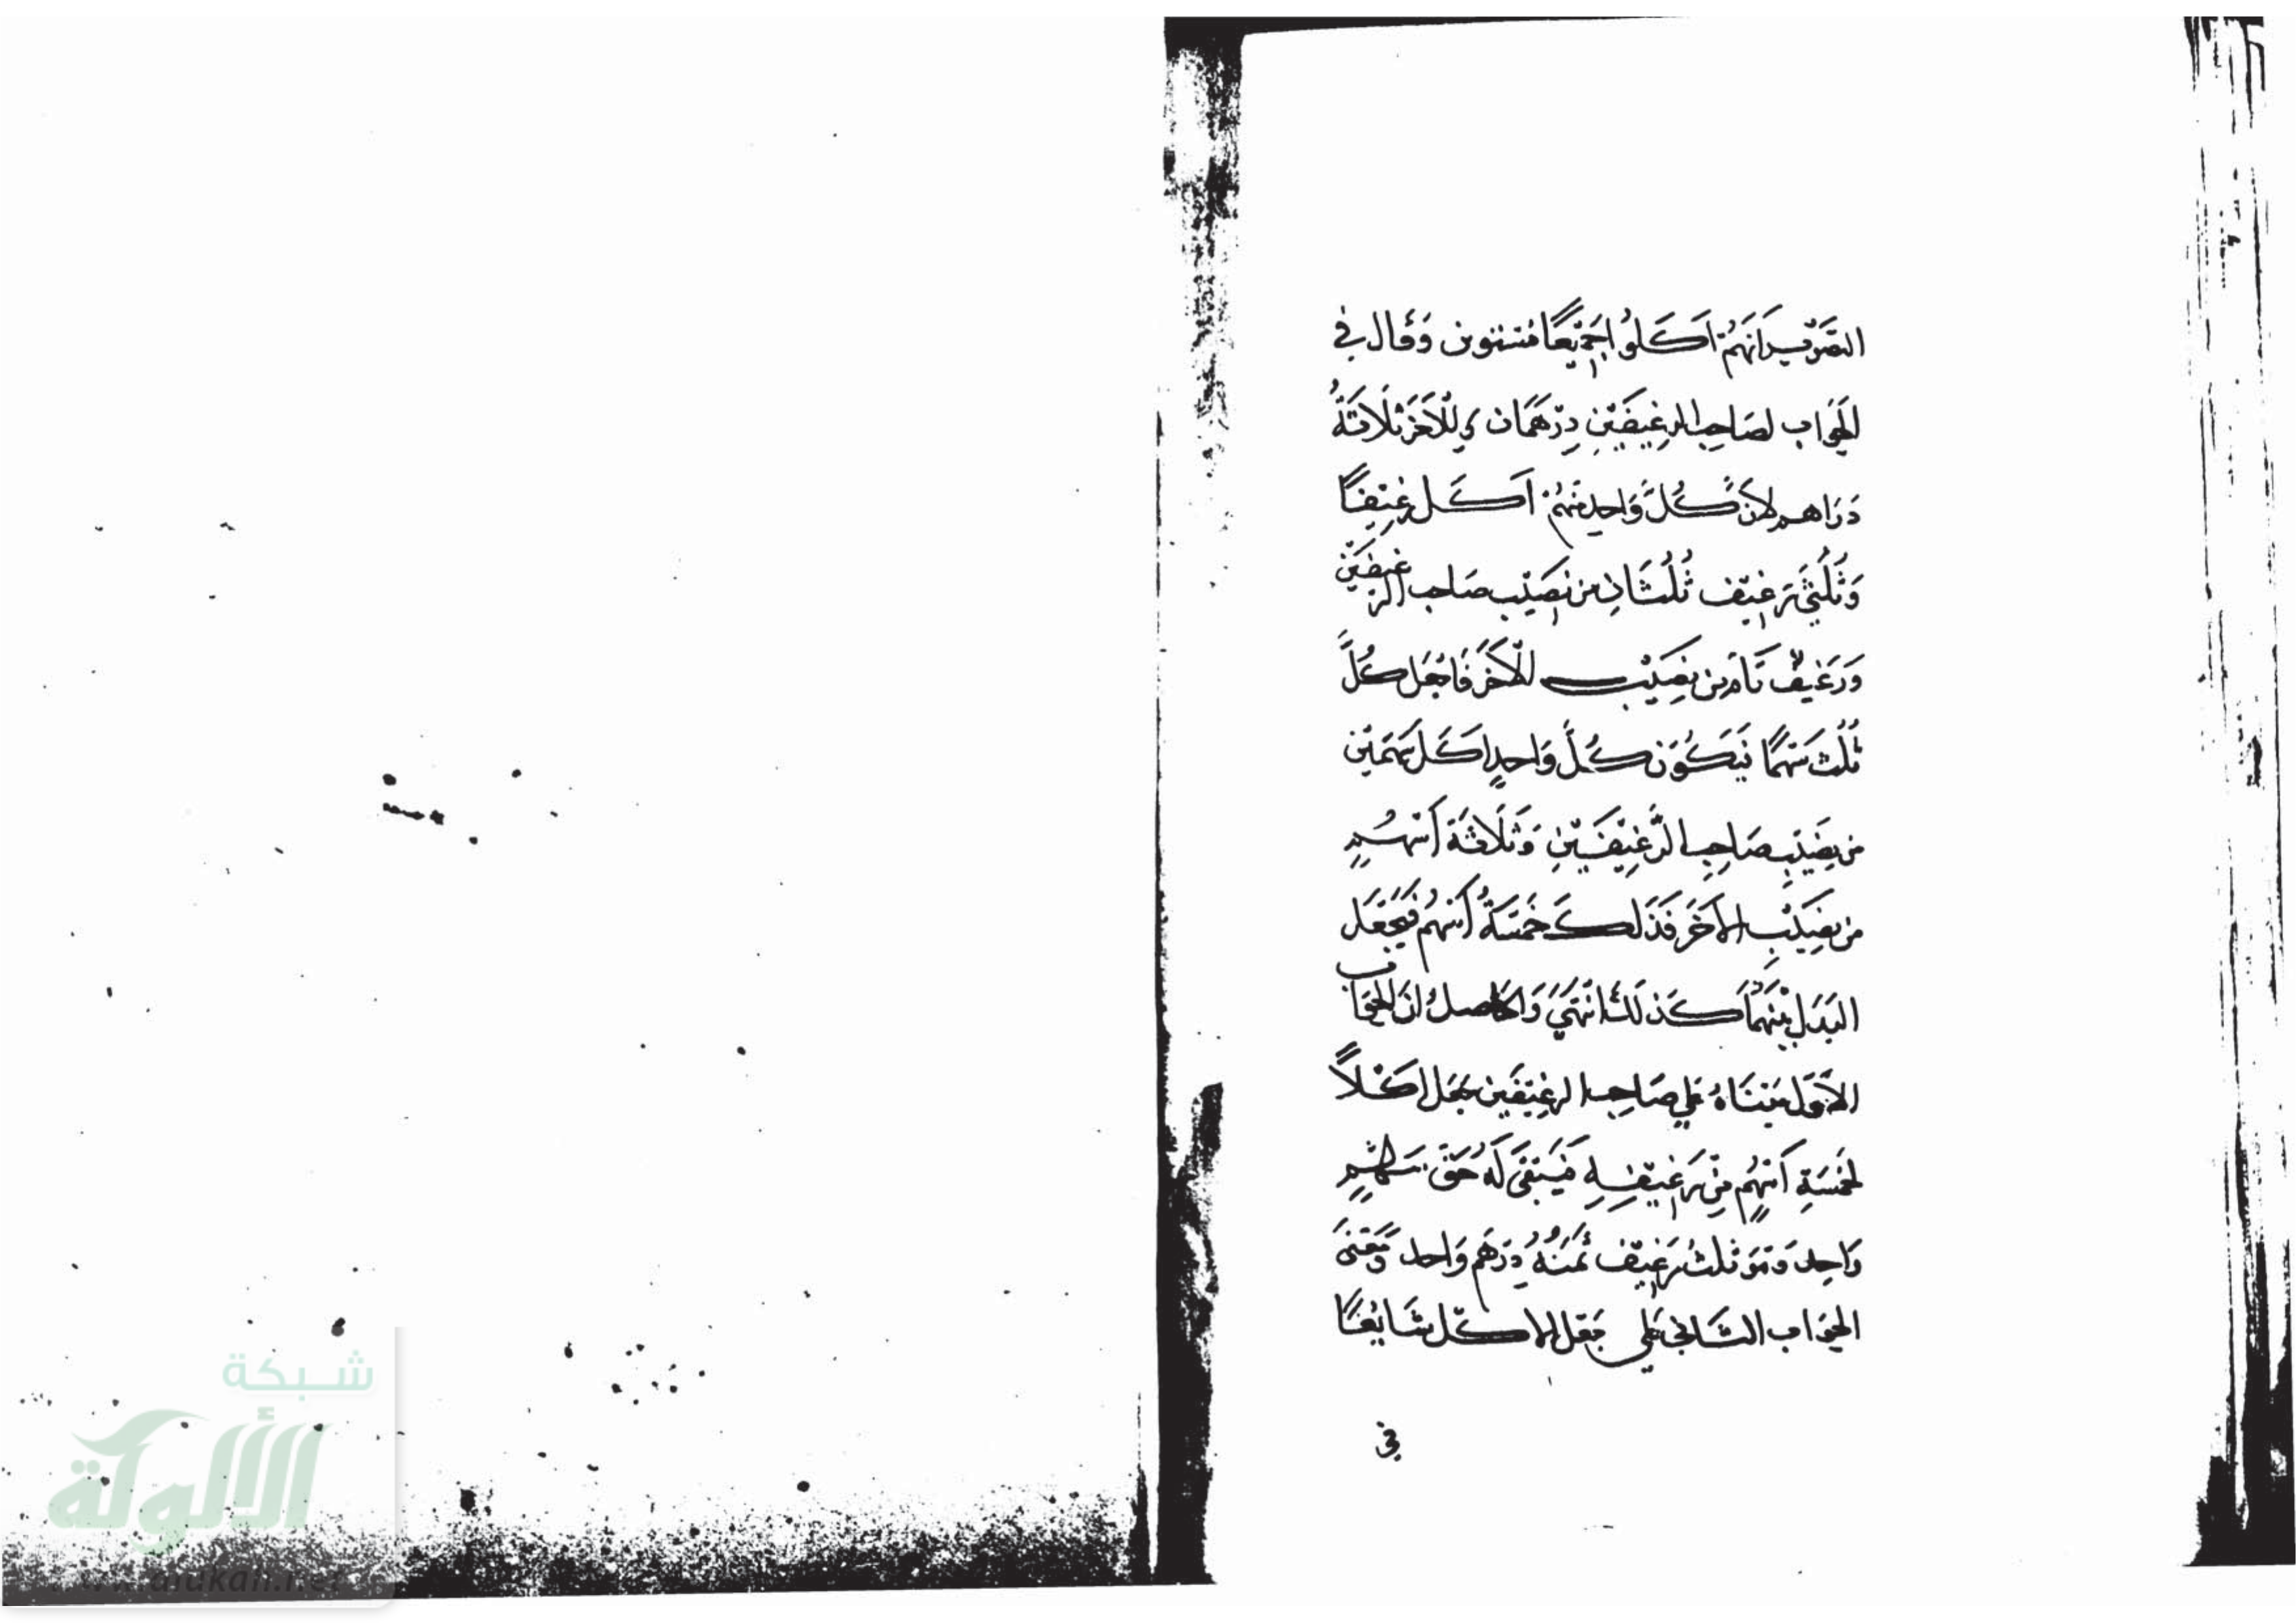 التصريف انهم اكلوا جميعا مستوين وقال في
الجواب لصاحب الرغيفين درهمان وللاخر ثلاثة
دراهم لان كل واحد منهم اكل رغيفا
وثلثي رغيف ثلثان من نصيب صاحب الرغيفين
ورغيف تام من نصيب للاخر فاجعل كل
ثلث سهما فيكون كل واحد اكل سهمين
من نصيب صاحب الرغيفين وثلاثة أسهم
من نصيب الاخر فذلك خمسة أسهم فيجعل
البدل بينهما كذلك انتهى والحاصل ان الجواب
الاول مبناه على صاحب الرغيفين بجعل اكلا
لخمسة أسهم من رغيفه فيبقى له حق سهم
واحد وهو ثلث رغيف ثمنه درهم واحد ومعنى
الجواب الثاني على جعل الاكل شايعا
في
شبكة
الألوكة
www.alukah.net